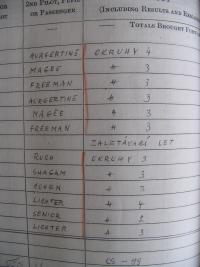 2ND PILOT, PUPIL
OR PASSENGER
(INCLUDING RESULTS AND REMARKS
TOTALS BROUGHT FOR
AURGERTINE OKRUHY 4
MAGEE " 3
FREEMAN " 3
AURGERTINE " 3
MAGEE " 3
FREEMAN " 3
ZALETÁVACÍ LET
RUCH OKRUHY 3
SHAGAM " 3
COHEN " 3
LICHTER " 4
SENIOR " 2
LICHTER " 3